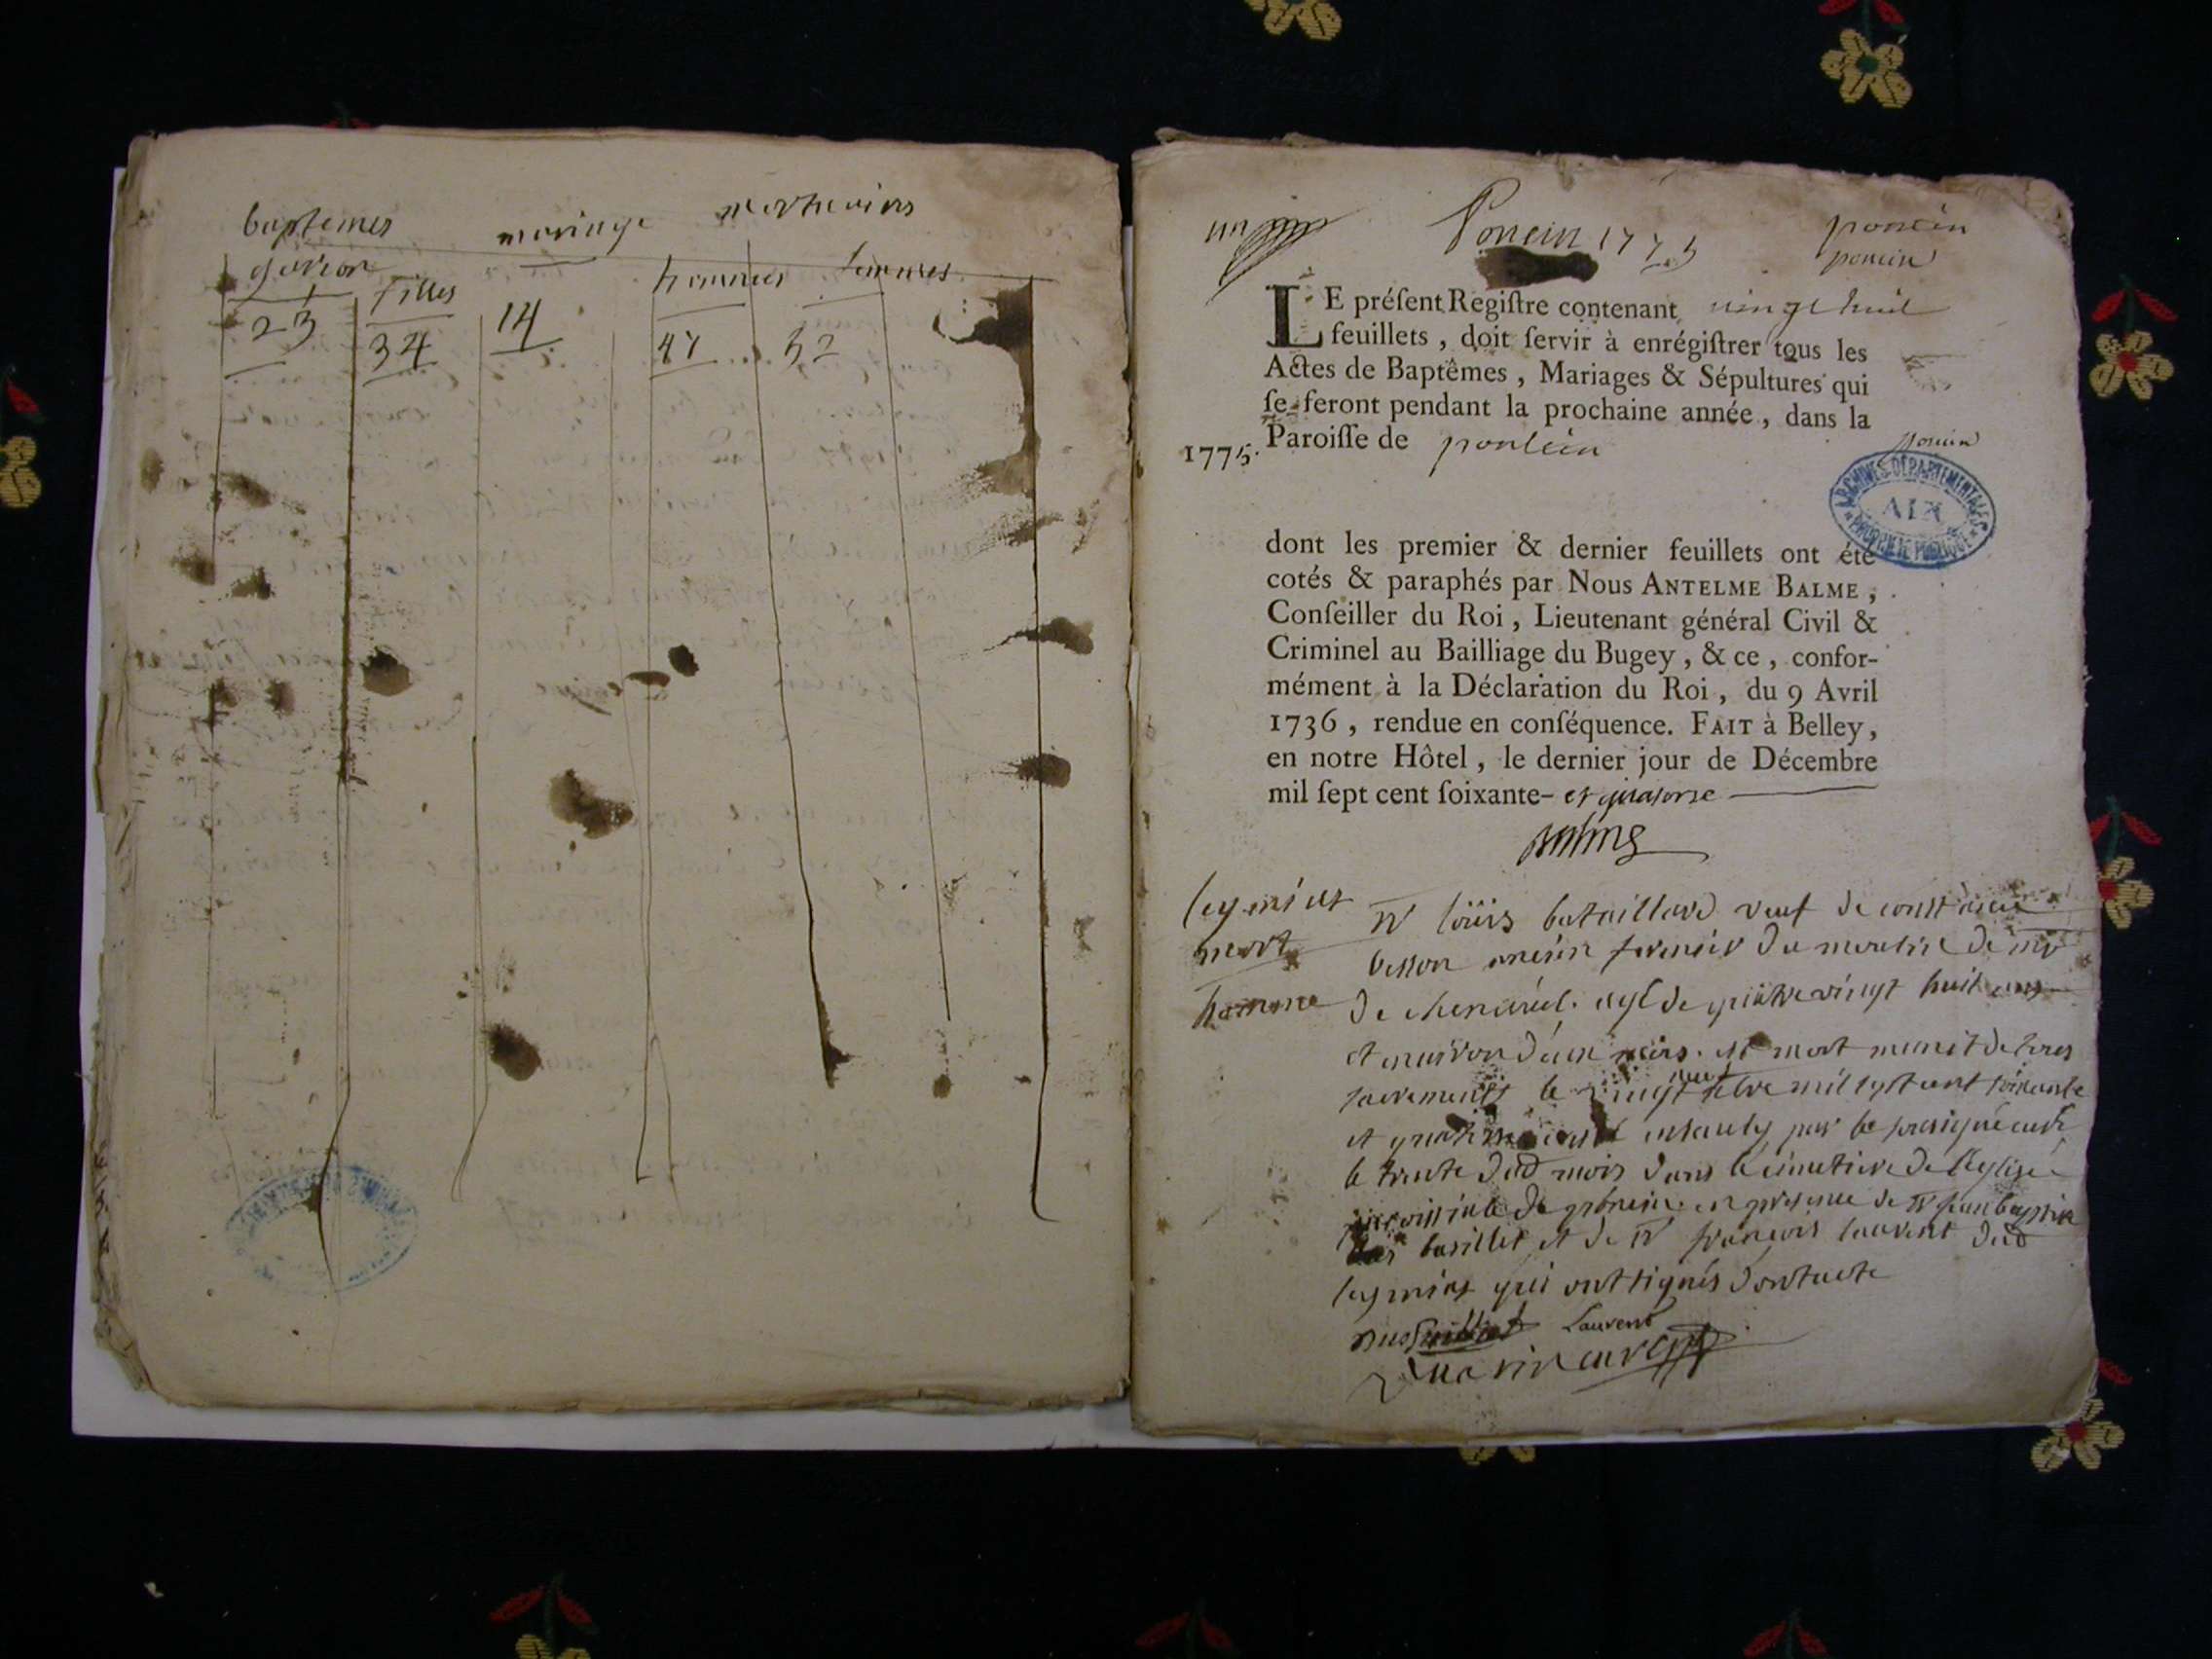 baptemes mariage mortuaires
garson filles hommes femmes
23 34 14 47 52
un
Poncin 1775
poncin
poncin
LE préſent Regiſtre contenant vingt huit
feuillets, doit ſervir à enrégiſtrer tous les
Actes de Baptêmes, Mariages & Sépultures qui
ſe feront pendant la prochaine année, dans la
1775. Paroiſſe de poncin
poncin
ARCHIVES DÉPARTEMENTALES
AIN
PROPRIÉTÉ PUBLIQUE
dont les premier & dernier feuillets ont été
cotés & paraphés par Nous ANTELME BALME,
Conſeiller du Roi, Lieutenant général Civil &
Criminel au Bailliage du Bugey, & ce, confor-
mément à la Déclaration du Roi, du 9 Avril
1736, rendue en conſéquence. FAIT à Belley,
en notre Hôtel, le dernier jour de Décembre
mil ſept cent ſoixante- et quatorze
Balme
leymiat
mort
homme
loüis bataillard veuf de constance
besson ancien fermier du moulin de mr
de chenavel. agé de quatre vingt huit ans
et environ d'un mois. est mort munit de
sacrements le vingt neuf mil sept cent soixante
et quatorze par le soussigné curé
le trente dud mois dans le cimetiere de l'eglise
paroissiale de poncin en presence de
et de françois laurent dud
leymiat qui ont signés dont acte
Laurent